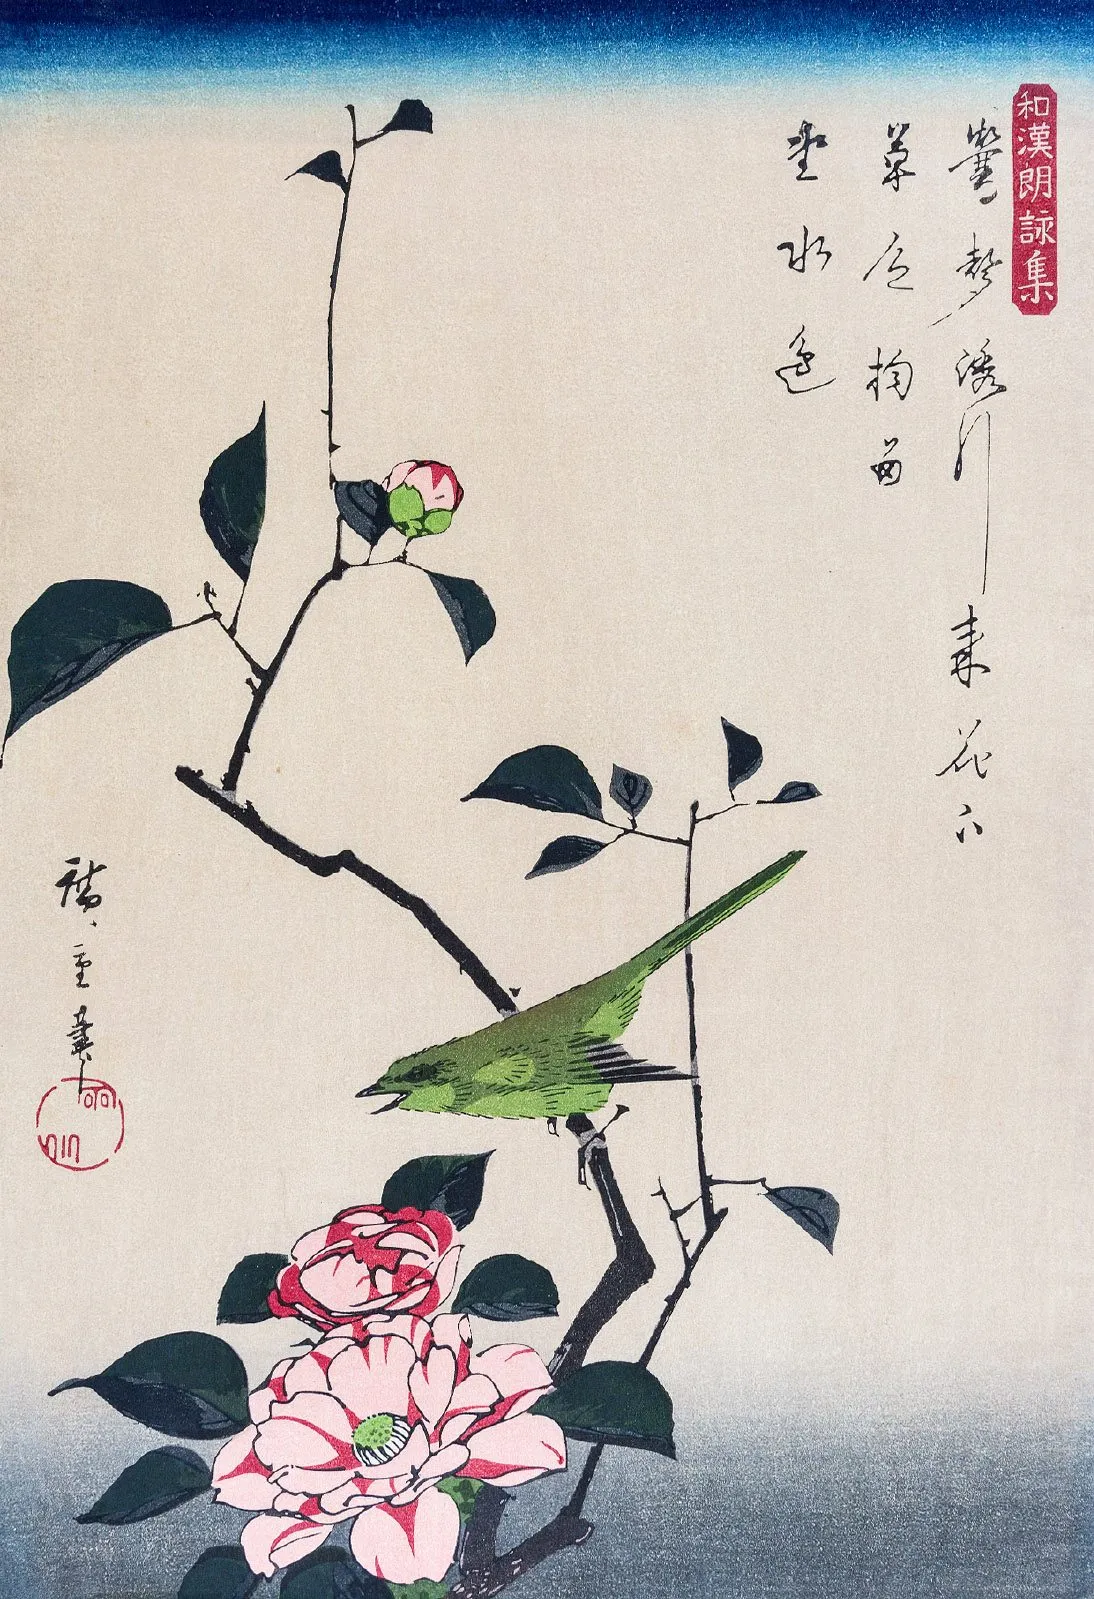 和漢朗詠集
鶯聲誘引来花下
草色拘留
坐水邊
廣重筆